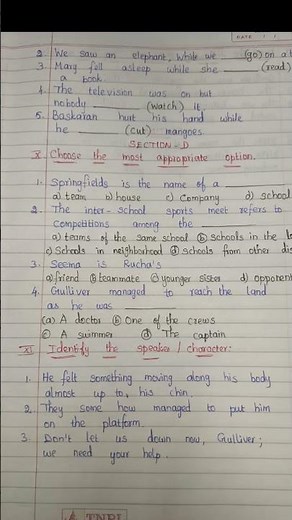 DATE
2. We saw an elephant, while we ____ (go) on a
3. Mary fell asleep while she ____ (read)
a book.
4. The television was on but
nobody ____ (watch) it.
5. Baskaran hurt his hand while
he ____ (cut) mangoes
SECTION-D
X Choose the most appiopriate option.
1. Springfields is the name of a ____
a) team b) house c) Company d) school
2. The inter-school sports meet refers to
competitions among the ____
a) teams of the same school b) Schools in the
c) Schools in neighborhood d) schools from other
3. Seema is Rucha's
a) friend b) teammate c) younger sister d) opponent
4. Gulliver managed to reach the land
as he was
(a) A doctor b) One of the crews
c) A swimmer d) The captain
XI Identify the speaker / character:
1. He felt something moving along his body
almost up to, his chin.
2. They some how managed to put him
on the platform.
3. Don't let us down now, Gulliver;
we need your help.
TNPL